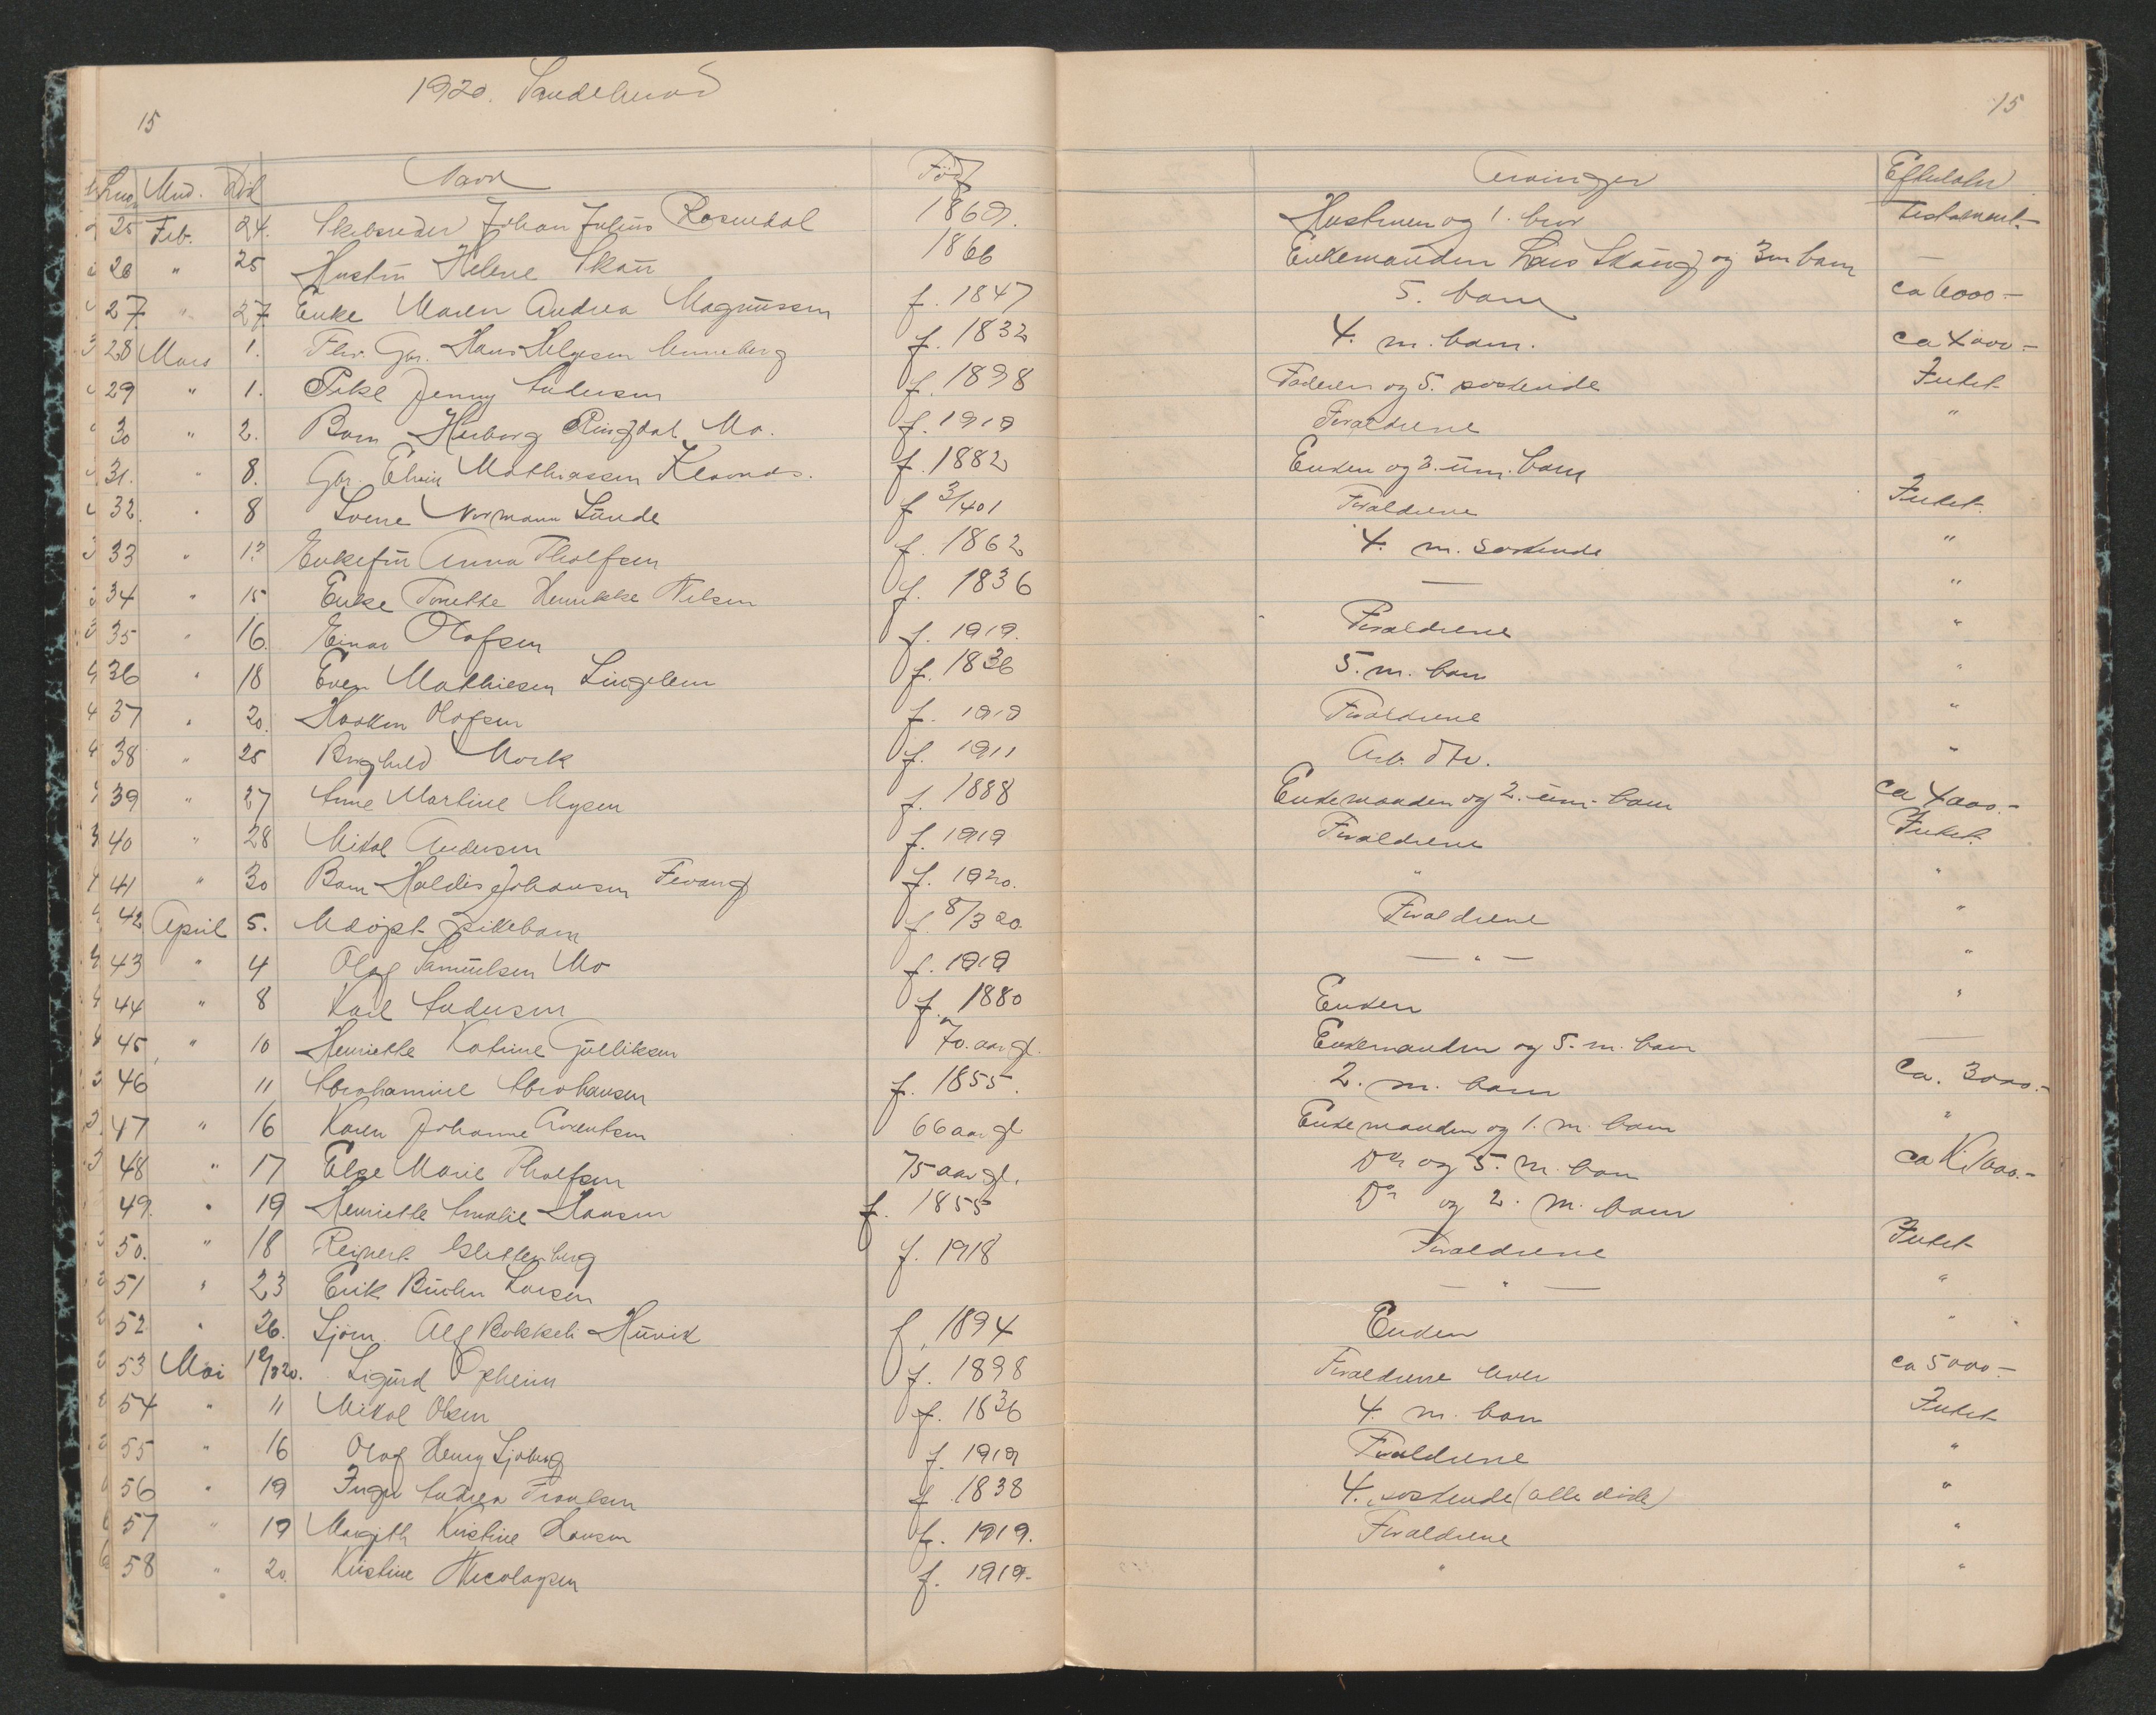 1920. Sandeherred
15
15
Lno. Mnd. Død Navn Født Arvinger Efterlader
25 Feb. 24. Skibsreder Johan Julius Rosendal 1869. Hustruen og 1. bror Testament.
26 " 25 Hustru Helene Skau 1866 Enkemanden Lars Skaug og 3 m barn —
27 " 27 Enke Maren Andrea Magnussen f. 1847 5. barn ca 6000 —
28 Mars 1. Fhv. Gbr. Hans Helgesen Unneberg f. 1832 4. m. barn. ca 4000 —
29 " 1. Pike Jenny Andersen f. 1898 Faderen og 5. søskende Intet
30 " 2. Barn Herborg Ringdal Mo. f. 1919 Foraldrene "
31. " 8. Gbr. Elvin Mathiassen Klavnds. f. 1882 Enken og 3. um. barn
32. " 8 Sverre Normann Lunde f 3/4 01 Foraldrene Intet.
33 " 12 Enkefru Anna Tholfsen f. 1862 4. m. søskende "
34 " 15 Enke Tonette Henrikke Nilsen f. 1836 — "
35 " 16. Einar Olafsen f. 1919. Foraldrene "
36 " 18 Even Mathiesen Lingelem f. 1836 5. m. barn "
37 " 20. Haakon Olafsen f. 1919 Foraldrene "
38 " 25 Borghild Mork f. 1911 Arb. "
39 " 27 Anne Martine Mysen f. 1888 Enkemanden og 2. um. barn ca 4000.—
40 " 28 Mikal Andersen f. 1919 Foraldrene Intet.
41 " 30 Barn Haldis Johansen Fevang f. 1920. " "
42 April 5. Udøpt Pikebarn f. 8/3 20. Foraldrene "
43 " 4 Olaf Samuelsen Mo f. 1919 — " — "
44 " 8 Karl Andersen f. 1880 Enken "
45 " 10 Henriette Katrine Gulliksen 70. aar gl. Enkemanden og 5. m. barn —
46 11 Abrahamine Abrahamsen f. 1855. 2. m. barn Ca. 3000.—
47 " 16 Karen Johanne Arentsen 66 aar gl Enkemanden og 1. m. barn "
48 " 17 Else Marie Tholfsen 75 aar gl. Do og 5. m. barn ca K. 1000.—
49. " 19 Henriette Amalie Hansen f. 1855 Do og 2. m. barn
50. " 18 Reinert Klettenberg f. 1918 Foraldrene Intet
51 " 23 Erik Larsen — " — "
52 " 26. Sjøm. Alf Rokkeli Huvik f. 1894 Enken "
53 Mai 12/3 20. Sigurd Opheim f. 1898 Foraldrene lever ca 5000 —
54 " 11 Mikal Olsen f. 1836 4. m. barn Intet
55 " 16 Olaf Henry Sjøberg f. 1919 Foraldrene "
56 " 19 Inger Andrea Paulsen f. 1838 4. søskende (alle døde) "
57 " 19 Margith Kristine Hansen f. 1919. Foraldrene "
58 " 20. Kristine Nicolaysen f. 1919. " "